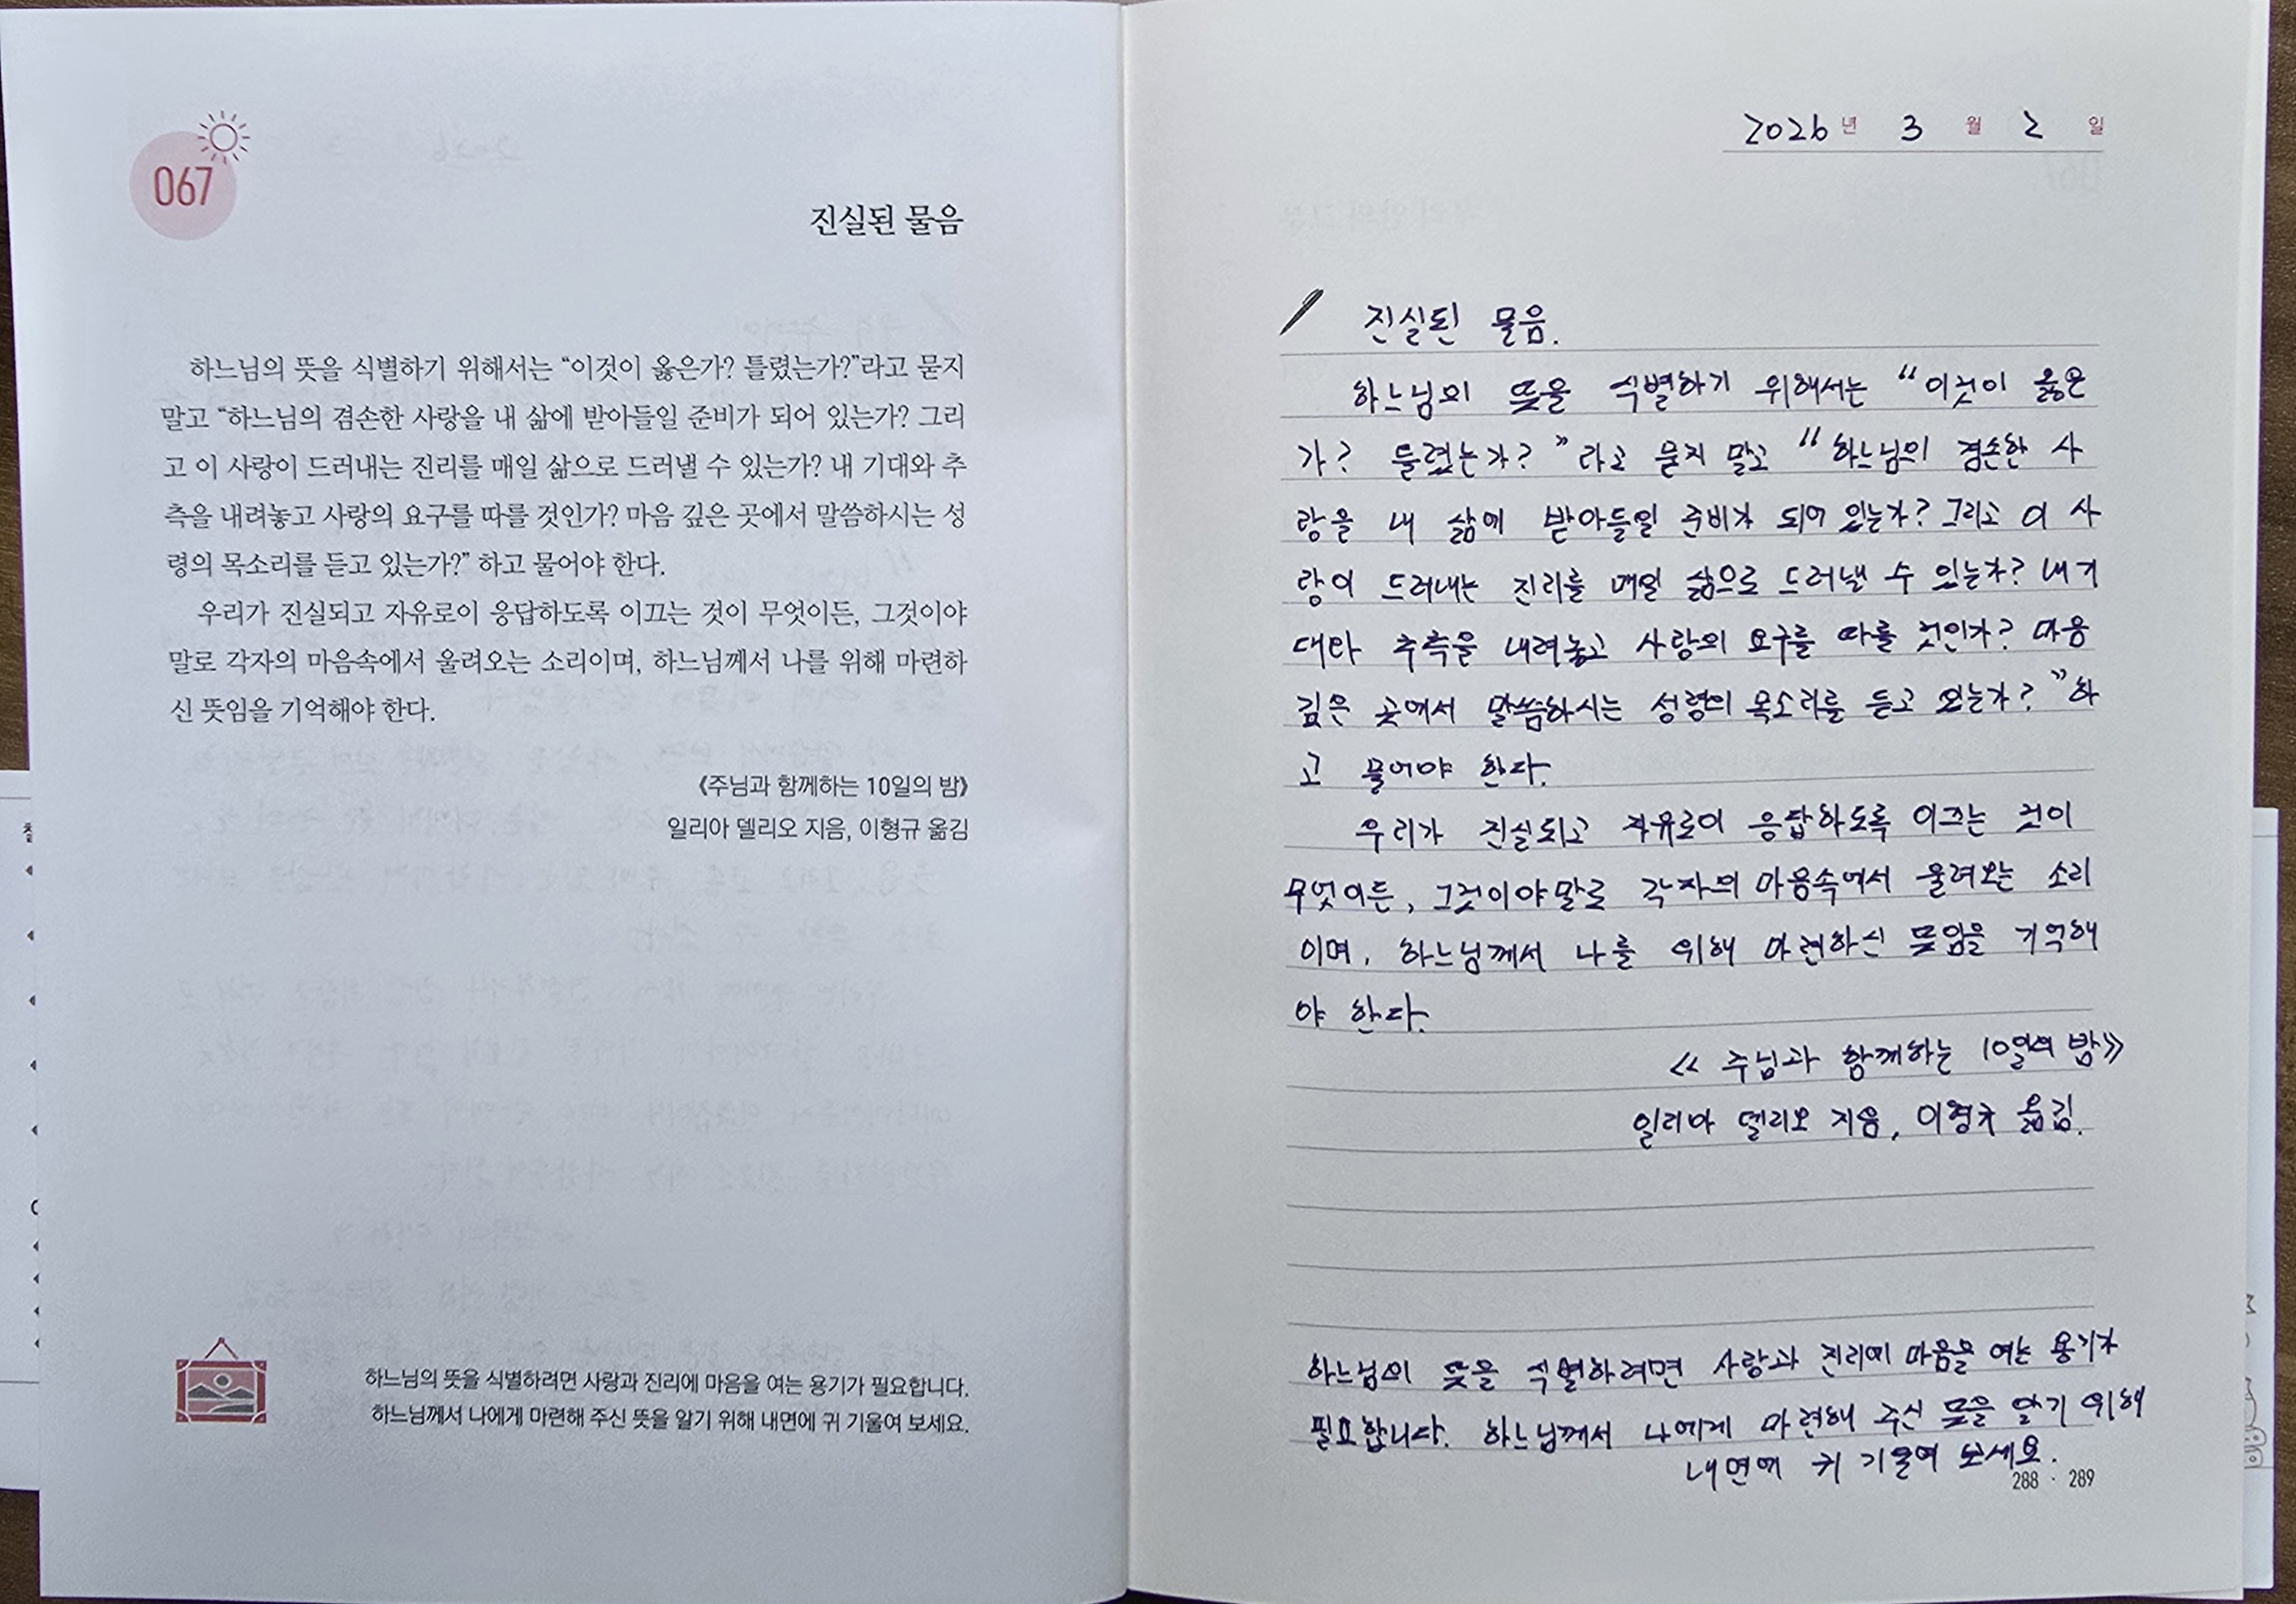 067
진실된 물음
하느님의 뜻을 식별하기 위해서는 “이것이 옳은가? 틀렸는가?”라고 묻지
말고 “하느님의 겸손한 사랑을 내 삶에 받아들일 준비가 되어 있는가? 그리
고 이 사랑이 드러내는 진리를 매일 삶으로 드러낼 수 있는가? 내 기대와 추
측을 내려놓고 사랑의 요구를 따를 것인가? 마음 깊은 곳에서 말씀하시는 성
령의 목소리를 듣고 있는가?” 하고 물어야 한다.
우리가 진실되고 자유로이 응답하도록 이끄는 것이 무엇이든, 그것이야
말로 각자의 마음속에서 울려오는 소리이며, 하느님께서 나를 위해 마련하
신 뜻임을 기억해야 한다.
《주님과 함께하는 10일의 밤》
일리아 델리오 지음, 이형규 옮김
하느님의 뜻을 식별하려면 사랑과 진리에 마음을 여는 용기가 필요합니다.
하느님께서 나에게 마련해 주신 뜻을 알기 위해 내면에 귀 기울여 보세요.
2026년 3월 2일
진실된 물음.
하느님의 뜻을 식별하기 위해서는 “이것이 옳은
가? 틀렸는가?”라고 묻지 말고 “하느님의 겸손한 사
랑을 내 삶에 받아들일 준비가 되어 있는가? 그리고 이 사
랑이 드러내는 진리를 매일 삶으로 드러낼 수 있는가? 내 기
대와 추측을 내려놓고 사랑의 요구를 따를 것인가? 마음
깊은 곳에서 말씀하시는 성령의 목소리를 듣고 있는가?” 하
고 물어야 한다.
우리가 진실되고 자유로이 응답하도록 이끄는 것이
무엇이든, 그것이야말로 각자의 마음속에서 울려오는 소리
이며, 하느님께서 나를 위해 마련하신 뜻임을 기억해
야 한다.
《주님과 함께하는 10일의 밤》
일리아 델리오 지음, 이형규 옮김.
하느님의 뜻을 식별하려면 사랑과 진리에 마음을 여는 용기가
필요합니다. 하느님께서 나에게 마련해 주신 뜻을 알기 위해
내면에 귀 기울여 보세요.
288 · 289